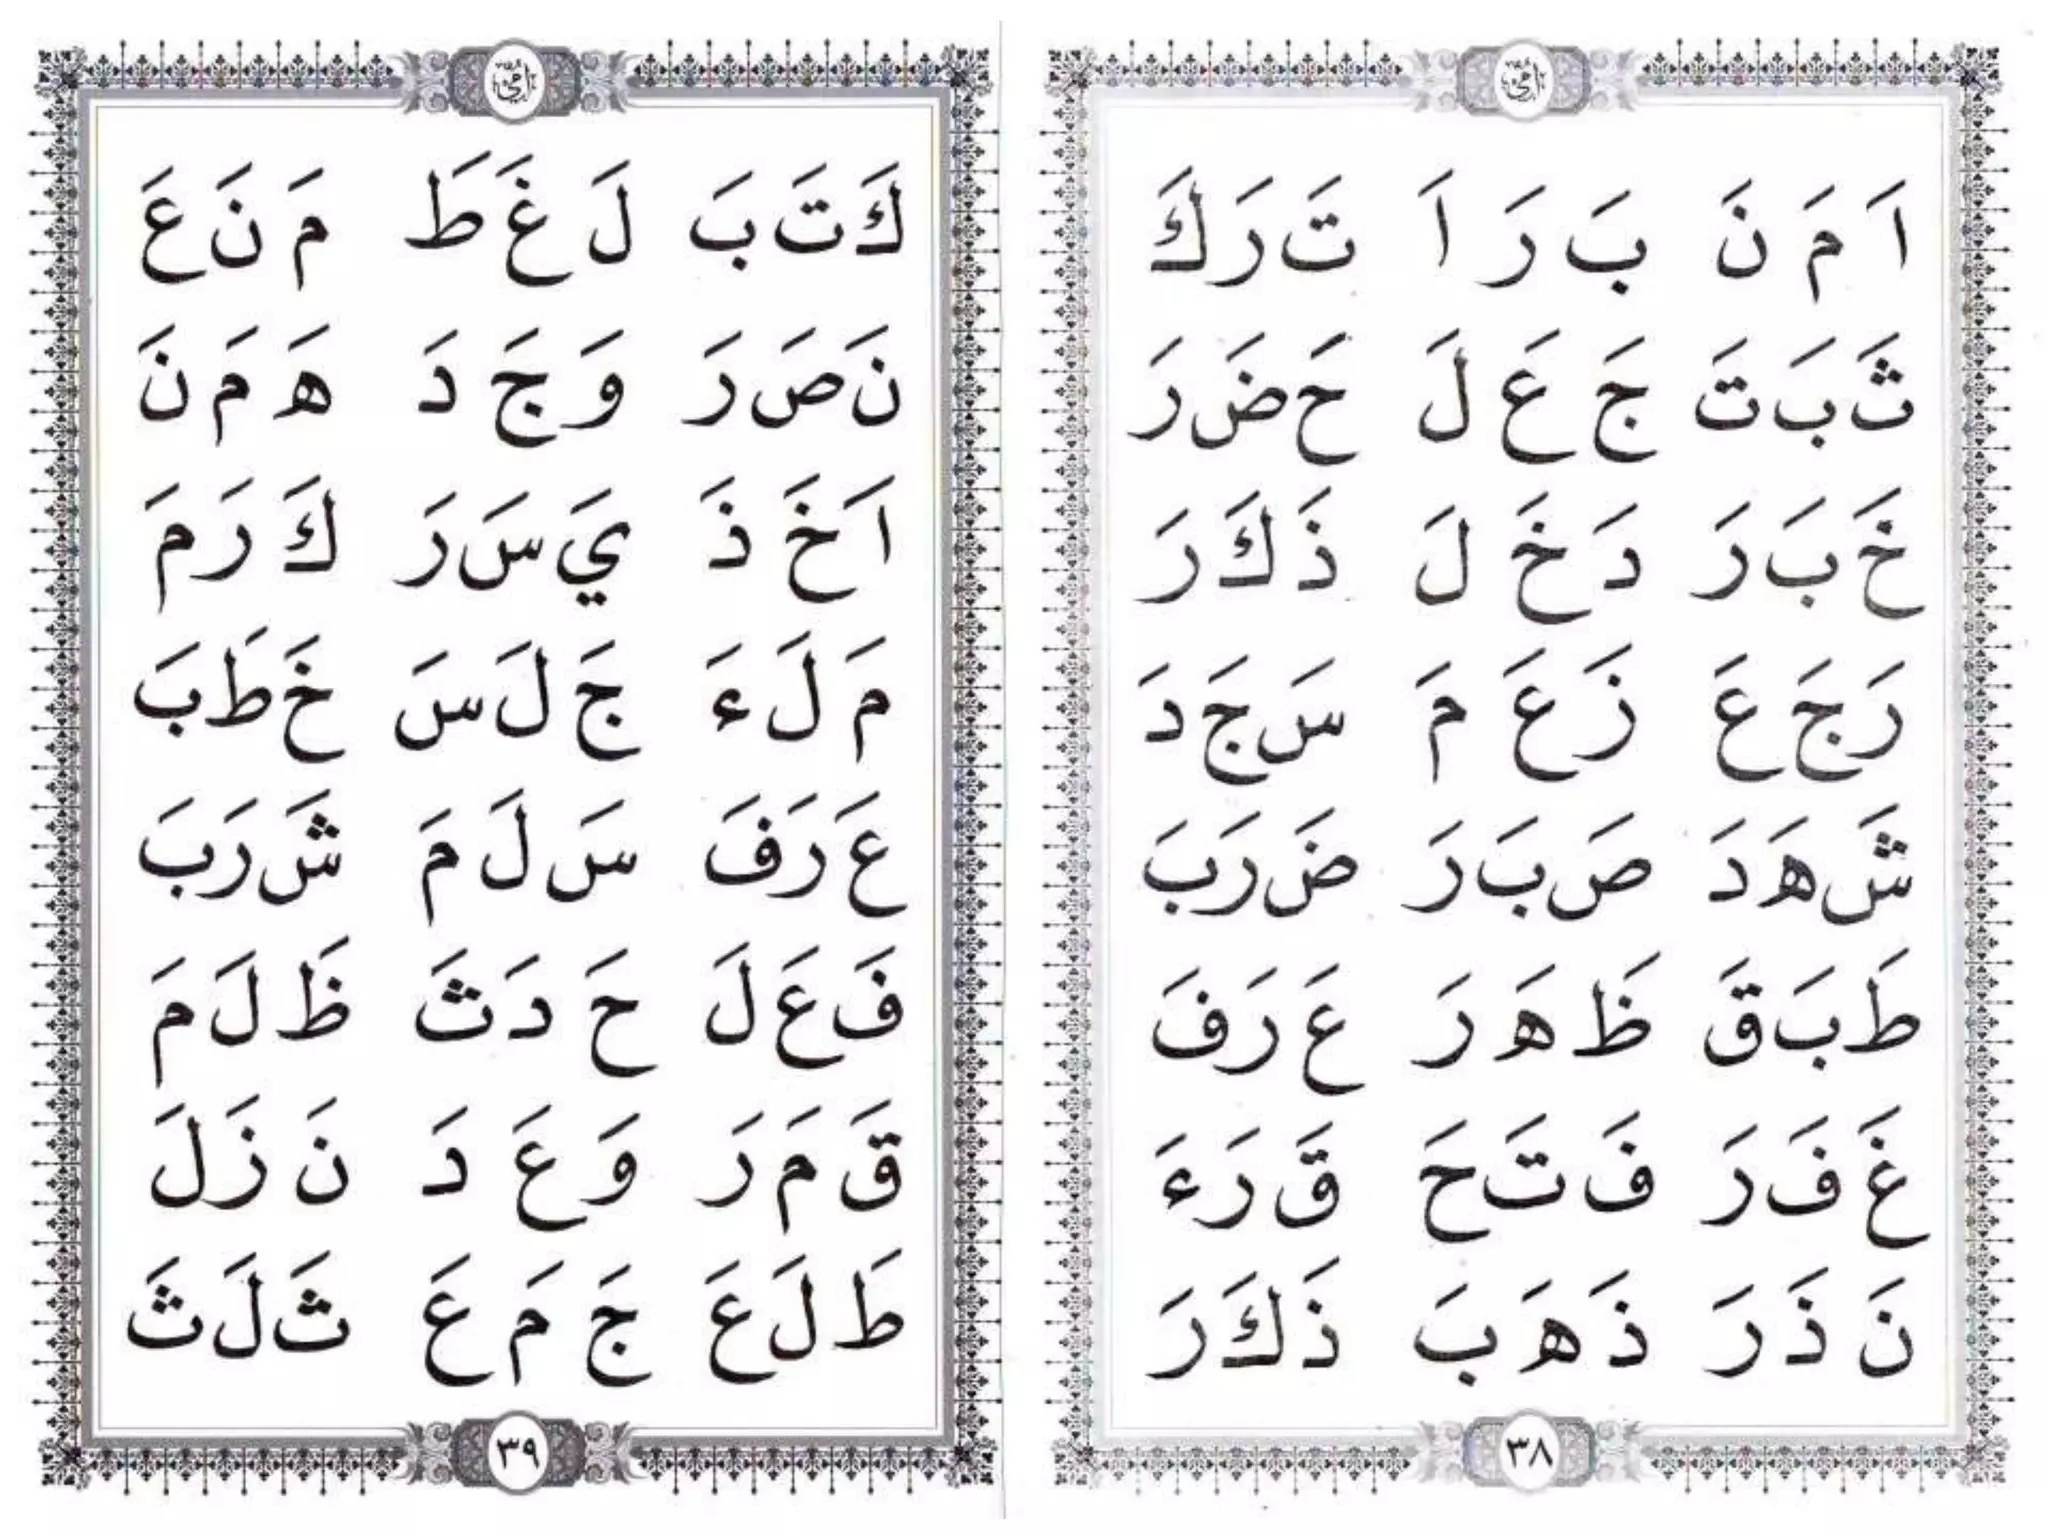 اَ مَ نَ بَ رَ اَ تَ رَ كَ
ثَ بَ تَ جَ عَ لَ حَ ضَ رَ
خَ بَ رَ دَ خَ لَ ذَ كَ رَ
رَ جَ عَ زَ عَ مَ سَ جَ دَ
شَ هَ دَ صَ بَ رَ ضَ رَ بَ
طَ بَ قَ ظَ هَ رَ عَ رَ فَ
غَ فَ رَ فَ تَ حَ قَ رَ ءَ
نَ ذَ رَ ذَ هَ بَ ذَ كَ رَ
٣٨
كَ تَ بَ لَ غَ طَ مَ نَ عَ
نَ صَ رَ وَ جَ دَ هَ مَ نَ
اَ خَ ذَ يَ سَ رَ كَ رَ مَ
مَ لَ ءَ جَ لَ سَ خَ طَ بَ
عَ رَ فَ سَ لَ مَ شَ رَ بَ
فَ عَ لَ حَ دَ ثَ ظَ لَ مَ
قَ مَ رَ وَ عَ دَ نَ زَ لَ
طَ لَ عَ جَ مَ عَ ثَ لَ ثَ
٣٩